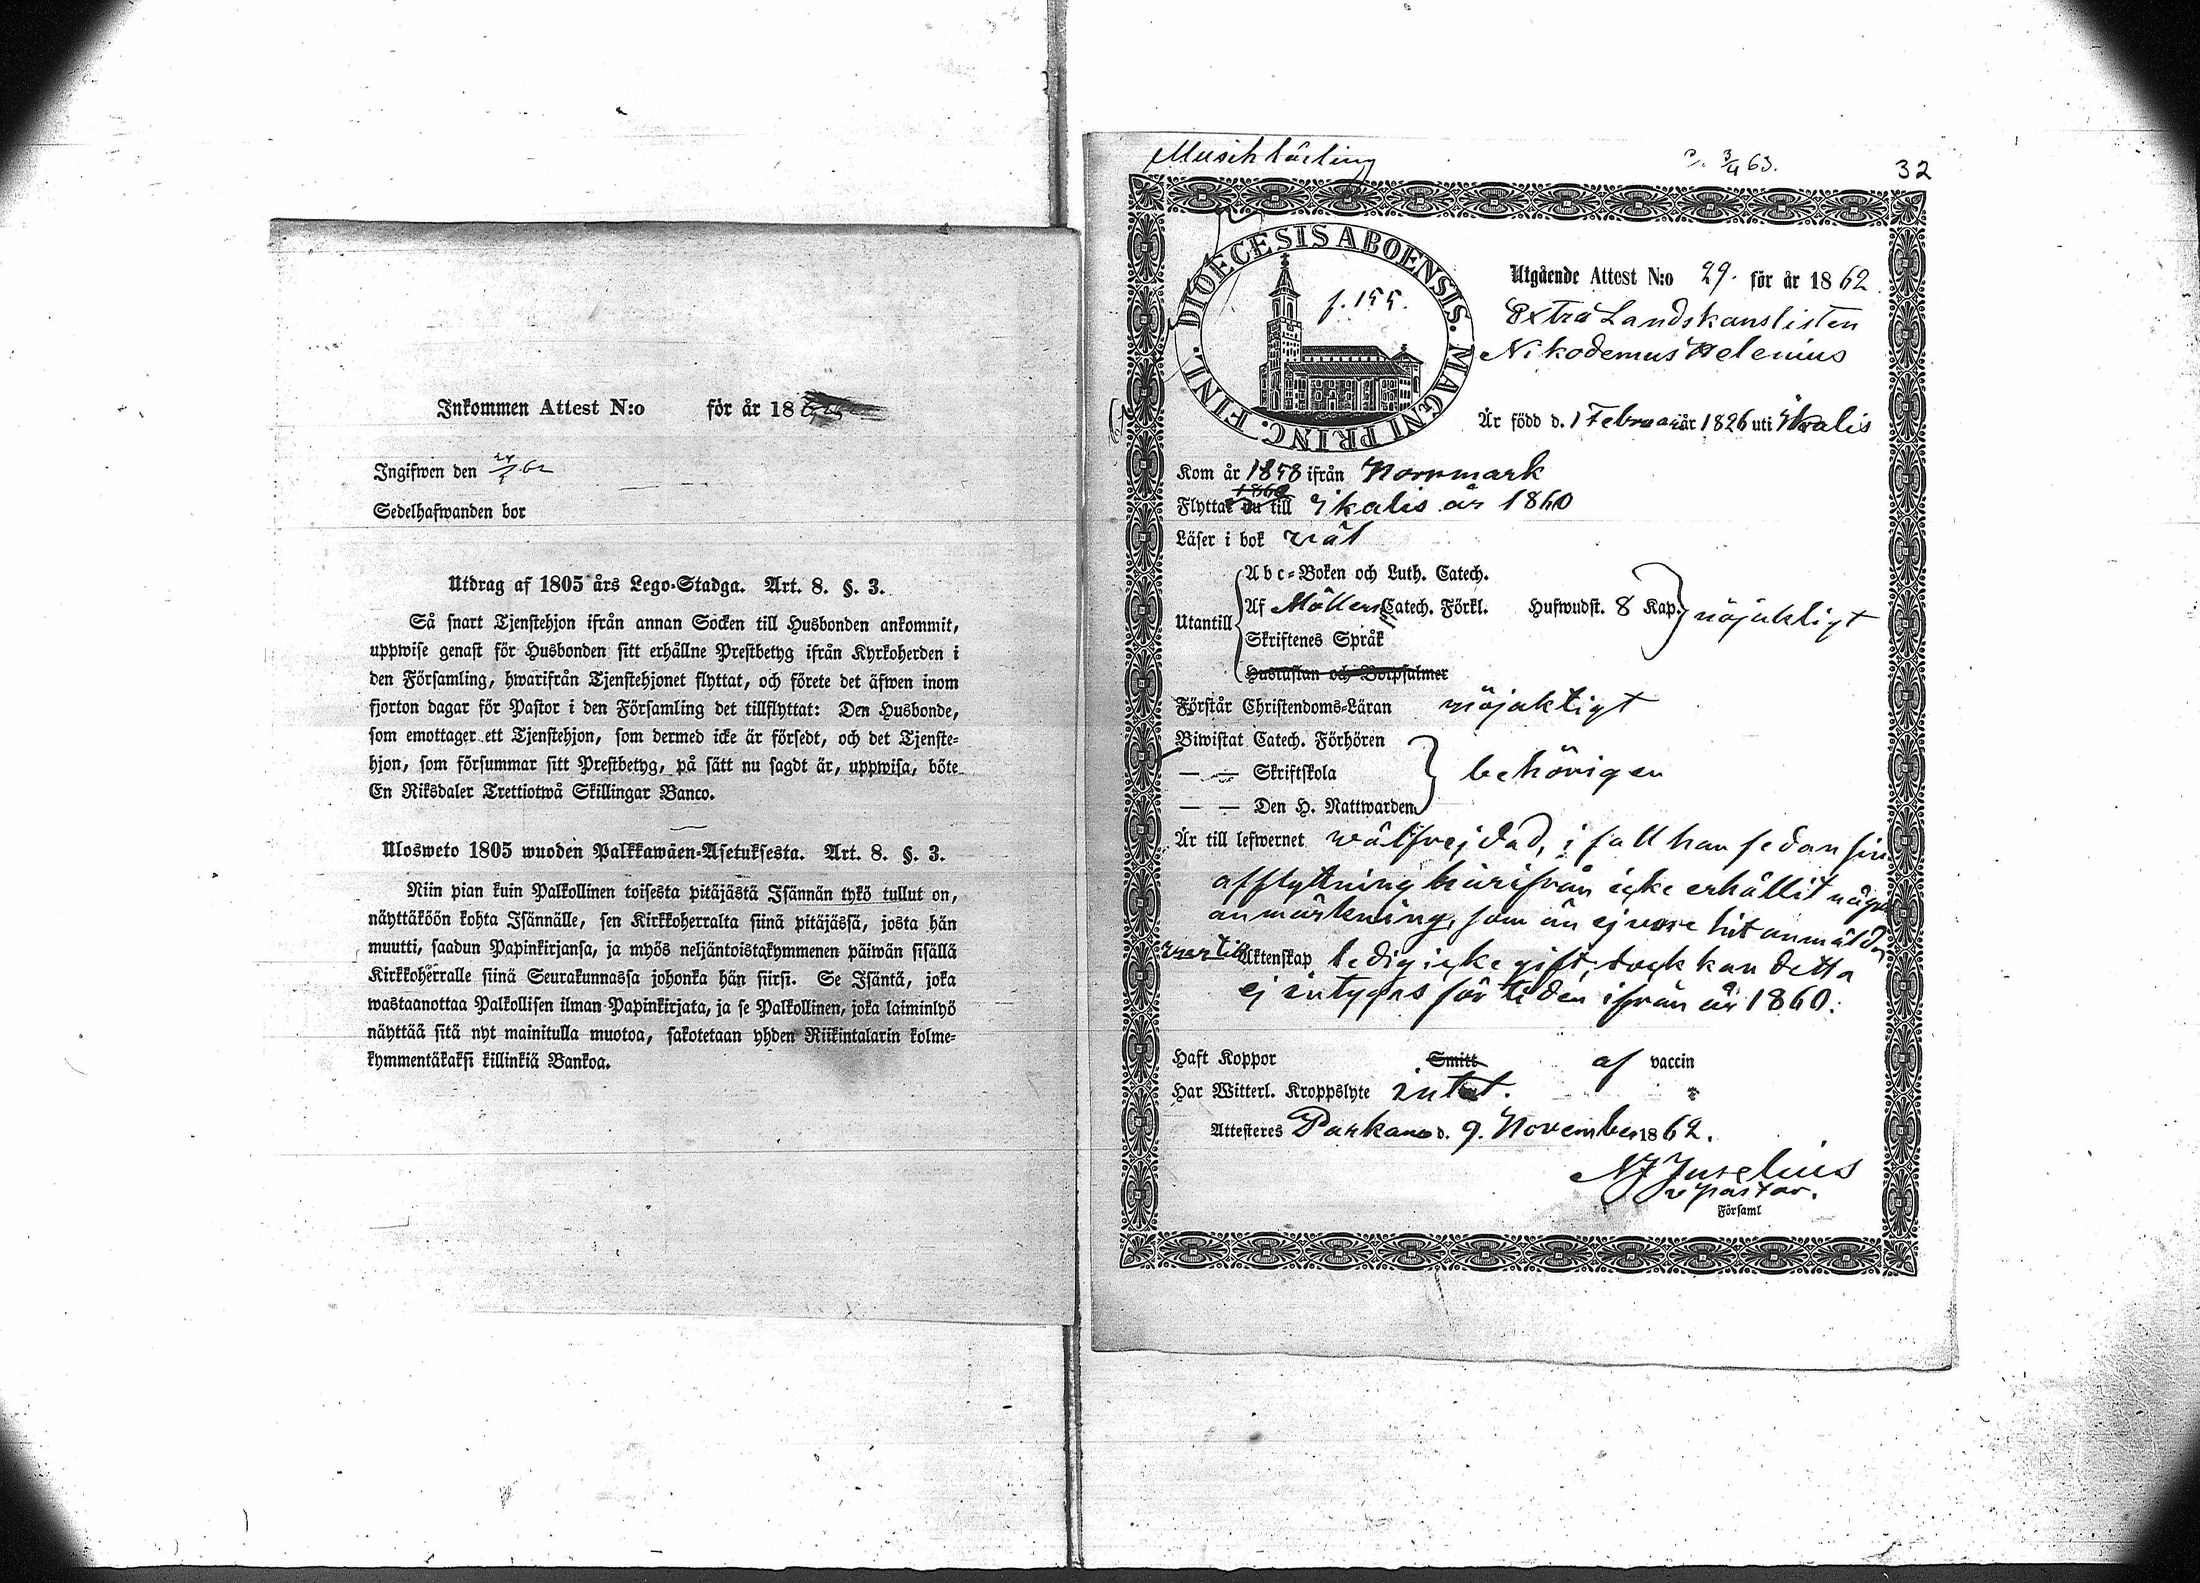 Inkommen Attest N:o för år 18
Ingifwen den 62
Sedelhafwanden bor
Utdrag af 1805 års Lego-Stadga. Art. 8. §. 3.
Så snart Tjenstehjon ifrån annan Socken till Husbonden ankommit,
uppwise genast för Husbonden sitt erhållne Prestbetyg ifrån Kyrkoherden i
den Församling, hwarifrån Tjenstehjonet flyttat, och förete det äfwen inom
fjorton dagar för Pastor i den Församling det tillflyttat: Den Husbonde,
som emottager ett Tjenstehjon, som dermed icke är försedt, och det Tjenste-
hjon, som försummar sitt Prestbetyg, på sätt nu sagdt är, uppwisa, böte
En Riksdaler Trettiotwå Skillingar Banco.
Ulosweto 1805 wuoden Palkkawäen-Asetuksesta. Art. 8. §. 3.
Niin pian kuin Palkollinen toisesta pitäjästä Isännän tykö tullut on,
näyttäköön kohta Isännälle, sen Kirkkoherralta siinä pitäjässä, josta hän
muutti, saadun Papinkirjansa, ja myös neljäntoistakymmenen päiwän sisällä
Kirkkoherralle siinä Seurakunnassa johonka hän siirsi. Se Isäntä, joka
wastaanottaa Palkollisen ilman Papinkirjata, ja se Palkollinen, joka laiminlyö
näyttää sitä nyt mainitulla muotoa, sakotetaan yhden Riikintalarin kolme-
kymmentäkaksi killinkiä Bankoa.
Musiklärling
3/4 63.
32
DIOECESIS ABOENSIS. MAGNI PRINC. FINL.
f. 155.
Utgående Attest N:o 29. för år 1862.
Extra Landskanslisten
Nikodemus Helenius
Är född d. 1 Februari år 1826 uti Ikalis
Kom år 1858 ifrån Norrmark
1860
Flyttat nu till Ikalis år 1860
Läser i bok wäl
Abc-Boken och Luth. Catech.
Utantill Af Möllers Catech. Förkl. Hufwudst. 8 Kap. nöjaktigt
Skriftenes Språk
Hustaflan och Botpsalmer
Förstår Christendoms-Läran nöjaktigt
Biwistat Catech. Förhören
— — Skriftskola behörigen
— — Den H. Nattwarden
Är till lefwernet wälfrejdad, i fall han sedan sin
afflyttning härifrån icke erhållit någon
anmärkning, som än ej vore hit anmäld
Äktenskap ledig icke gift; dock kan detta
ej intygas för tiden ifrån år 1860.
Haft Koppor Smitt af vaccin
Har Witterl. Kroppslyte intet.
Attesteres Parkano d. 9. November 1862.
N J Juselius
v pastor.
Församl